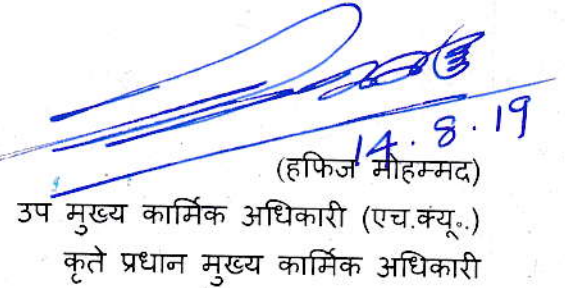 14.8.19
(हफिज मोहम्मद)
उप मुख्य कार्मिक अधिकारी (एच.क्यू..)
कृते प्रधान मुख्य कार्मिक अधिकारी